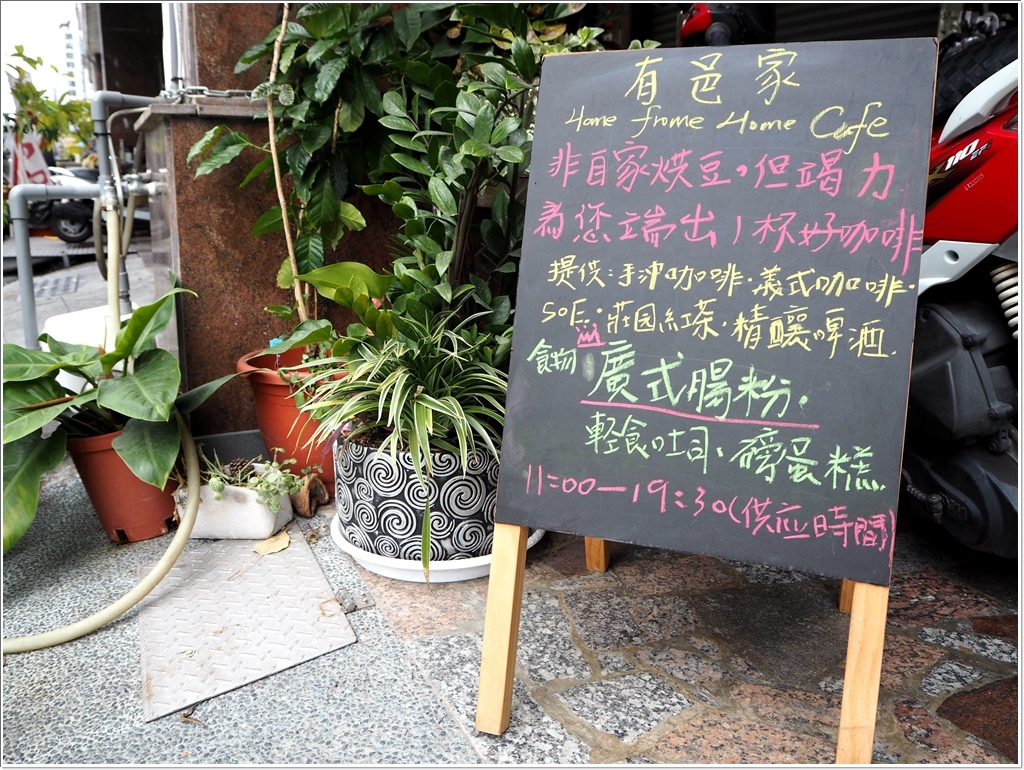 有邑家
Home frome Home Cafe
非自家烘豆。但竭力
為您端出1杯好咖啡
提供:手沖咖啡.義式咖啡.
SOE.莊园紅茶.精釀啤酒.
食物 廣式腸粉.
輕食吐司.磅蛋糕.
11:00-19:30(供应時間)
110